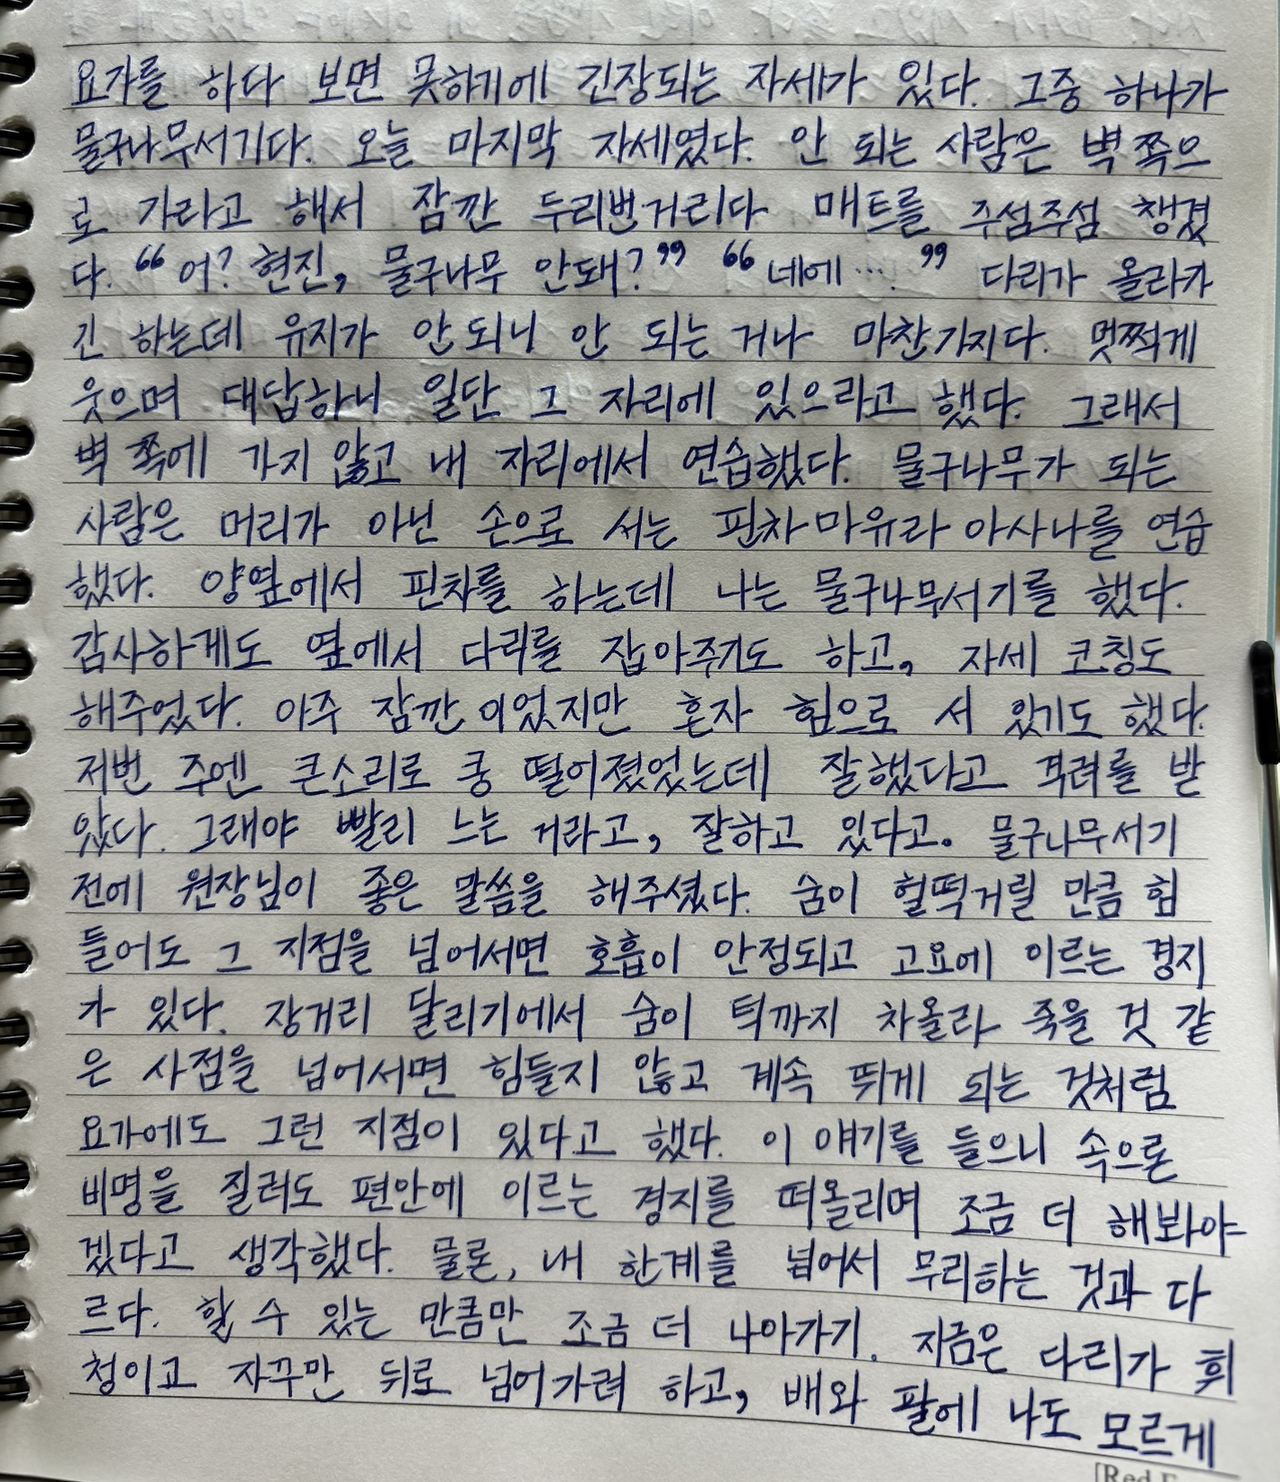 요가를 하다 보면 못하기에 긴장되는 자세가 있다. 그중 하나가
물구나무서기다. 오늘 마지막 자세였다. 안 되는 사람은 벽 쪽으
로 가라고 해서 잠깐 두리번거리다 매트를 주섬주섬 챙겼
다. “어? 현진, 물구나무 안돼?” “네에… ” 다리가 올라가
긴 하는데 유지가 안되니 안 되는 거나 마찬가지다. 멋쩍게
웃으며 대답하니 일단 그 자리에 있으라고 했다. 그래서
벽 쪽에 가지 않고 내 자리에서 연습했다. 물구나무가 되는
사람은 머리가 아닌 손으로 서는 핀차마유라 아사나를 연습
했다. 양옆에서 핀차를 하는데 나는 물구나무서기를 했다.
감사하게도 옆에서 다리를 잡아주기도 하고, 자세 코칭도
해주었다. 아주 잠깐이었지만 혼자 힘으로 서 있기도 했다.
저번 주엔 큰소리로 쿵 떨어졌었는데 잘했다고 격려를 받
았다. 그래야 빨리 느는 거라고, 잘하고 있다고. 물구나무서기
전에 원장님이 좋은 말씀을 해주셨다. 숨이 헐떡거릴 만큼 힘
들어도 그 지점을 넘어서면 호흡이 안정되고 고요에 이르는 경지
가 있다. 장거리 달리기에서 숨이 턱까지 차올라 죽을 것 같
은 사점을 넘어서면 힘들지 않고 계속 뛰게 되는 것처럼
요가에도 그런 지점이 있다고 했다. 이 얘기를 들으니 속으론
비명을 질러도 편안에 이르는 경지를 떠올리며 조금 더 해봐야
겠다고 생각했다. 물론, 내 한계를 넘어서 무리하는 것과 다
르다. 할 수 있는 만큼만 조금 더 나아가기. 지금은 다리가 휘
청이고 자꾸만 뒤로 넘어가려 하고, 배와 팔에 나도 모르게